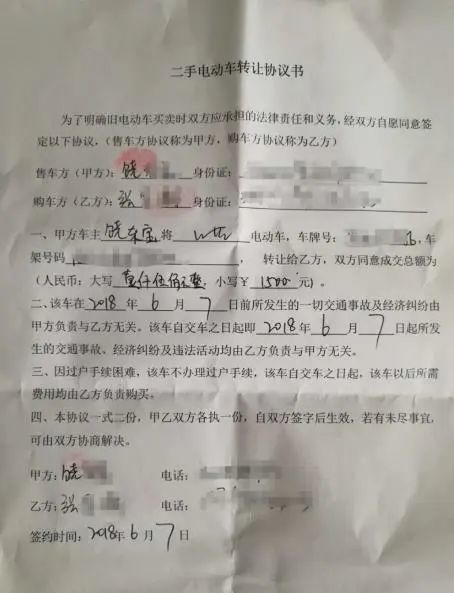 二手电动车转让协议书
为了明确旧电动车买卖时双方应承担的法律责任和义务，经双方自愿同意签
定以下协议，（售车方协议称为甲方，购车方协议称为乙方）
售车方（甲方）：饶 身份证：
购车方（乙方）：张 身份证：
一、甲方车主 饶 宝 将 电动车，车牌号： 车
架号码 转让给乙方，双方同意成交总额为
（人民币：大写 壹仟伍佰元整，小写￥ 1500 元）。
二、该车在 2018 年 6 月 7 日前所发生的一切交通事故及经济纠纷由
甲方负责与乙方无关。该车自交车之日起即 2018 年 6 月 7 日起所发
生的交通事故、经济纠纷及违法活动均由乙方负责与甲方无关。
三、因过户手续困难，该车不办理过户手续，该车自交车之日起，该车以后所需
费用均由乙方负责购买。
四、本协议一式二份，甲乙双方各执一份，自双方签字后生效，若有未尽事宜，
可由双方协商解决。
甲方：饶 电话：
乙方：张 电话：
签约时间：2018年 6 月 7 日